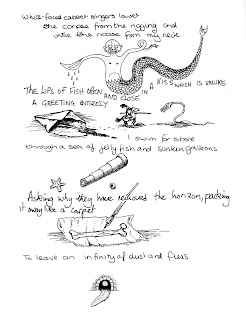 White-faced cabaret singers lower
the corpse from the rigging and
untie the noose from my neck
THE LIPS OF FISH OPEN AND CLOSE IN A KISS WHICH IS UNLIKE
A GREETING ENTIRELY
I swim for shore
through a sea of jelly fish and sunken galleons
Asking why they have removed the horizon, packing
it away like a carpet
To leave an infinity of dust and fleas